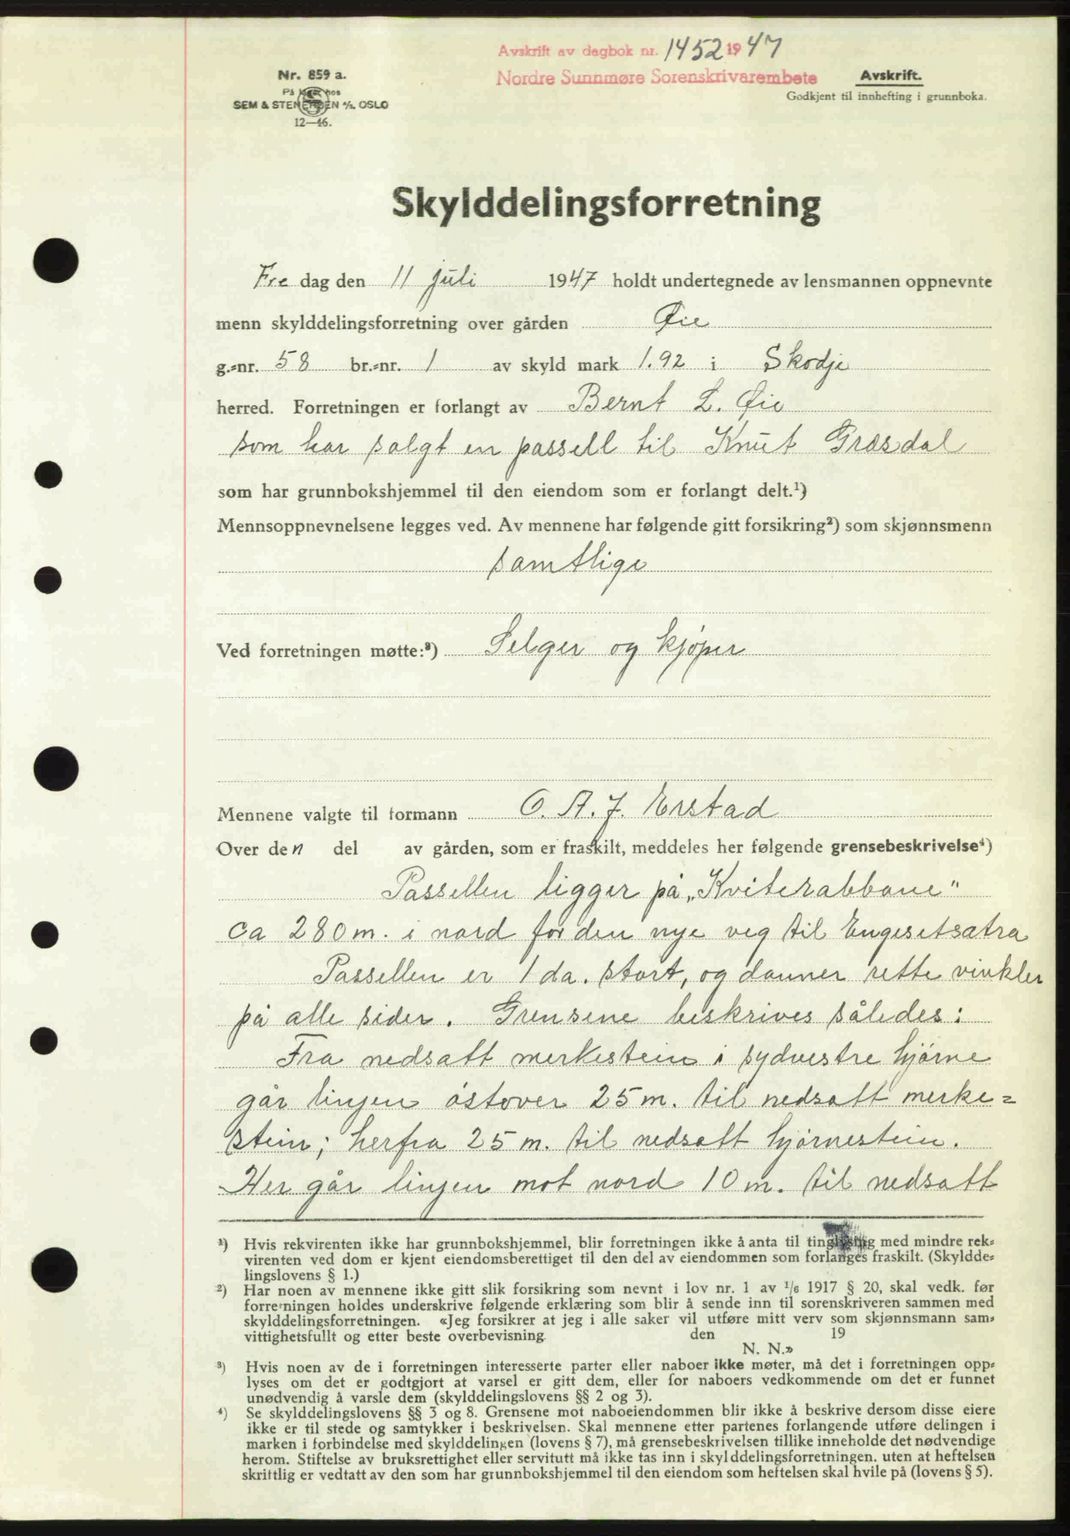 Avskrift av dagbok nr. 1452 1947
Nordre Sunnmøre Sorenskrivarembete
Avskrift.
Godkjent til innhefting i grunnboka.
Nr. 859 a.
På lager hos
SEM & STENERSEN A/S, OSLO
12—46.
Skylddelingsforretning
Fre dag den 11 juli 1947 holdt undertegnede av lensmannen oppnevnte
menn skylddelingsforretning over gården Øie
g.-nr. 58 br.-nr. 1 av skyld mark 1.92 i Skodje
herred. Forretningen er forlangt av Bernt L. Øie
som har solgt en passell til Knut Græsdal
som har grunnbokshjemmel til den eiendom som er forlangt delt.¹)
Mennsoppnevnelsene legges ved. Av mennene har følgende gitt forsikring²) som skjønnsmenn
samtlige
Ved forretningen møtte:³) Selger og kjøper
Mennene valgte til formann O. A. J. Erstad
Over den del av gården, som er fraskilt, meddeles her følgende grensebeskrivelse⁴)
Passellen ligger på „Kviterabbane"
ca 280 m. i nord for den nye veg til Engesetsætra
Passellen er 1 da. stort, og danner rette vinkler
på alle sider. Grensene beskrives således:
Fra nedsatt merkestein i sydvestre hjørne
går linjen østover 25 m. til nedsatt merke=
stein; herfra 25 m. til nedsatt hjørnestein.
Her går linjen mot nord 10 m. til nedsatt
¹) Hvis rekvirenten ikke har grunnbokshjemmel, blir forretningen ikke å anta til tinglysing med mindre rek-
virenten ved dom er kjent eiendomsberettiget til den del av eiendommen som forlanges fraskilt. (Skyldde-
lingslovens § 1.)
²) Har noen av mennene ikke gitt slik forsikring som nevnt i lov nr. 1 av 1/6 1917 § 20, skal vedk. før
forretningen holdes underskrive følgende erklæring som blir å sende inn til sorenskriveren sammen med
skylddelingsforretningen. «Jeg forsikrer at jeg i alle saker vil utføre mitt verv som skjønnsmann sam-
vittighetsfullt og etter beste overbevisning. den 19
N. N.»
³) Hvis noen av de i forretningen interesserte parter eller naboer ikke møter, må det i forretningen opp-
lyses om det er godtgjort at varsel er gitt dem, eller for naboers vedkommende om det er funnet
unødvendig å varsle dem (skylddelingslovens §§ 2 og 3).
⁴) Se skylddelingslovens §§ 3 og 8. Grensene mot naboeiendommen blir ikke å beskrive dersom disse eiere
ikke er til stede og samtykker i beskrivelsen. Skal mennene etter partenes forlangende utføre delingen i
marken i forbindelse med skylddelingen (lovens § 7), må grensebeskrivelsen tillike inneholde det nødvendige
herom. Stiftelse av bruksrettighet eller servitutt må ikke tas inn i skylddelingsforretningen. uten at heftelsen
skriftlig er vedtatt av den som har grunnbokshjemmel til den eiendom som heftelsen skal hvile på (lovens § 5).